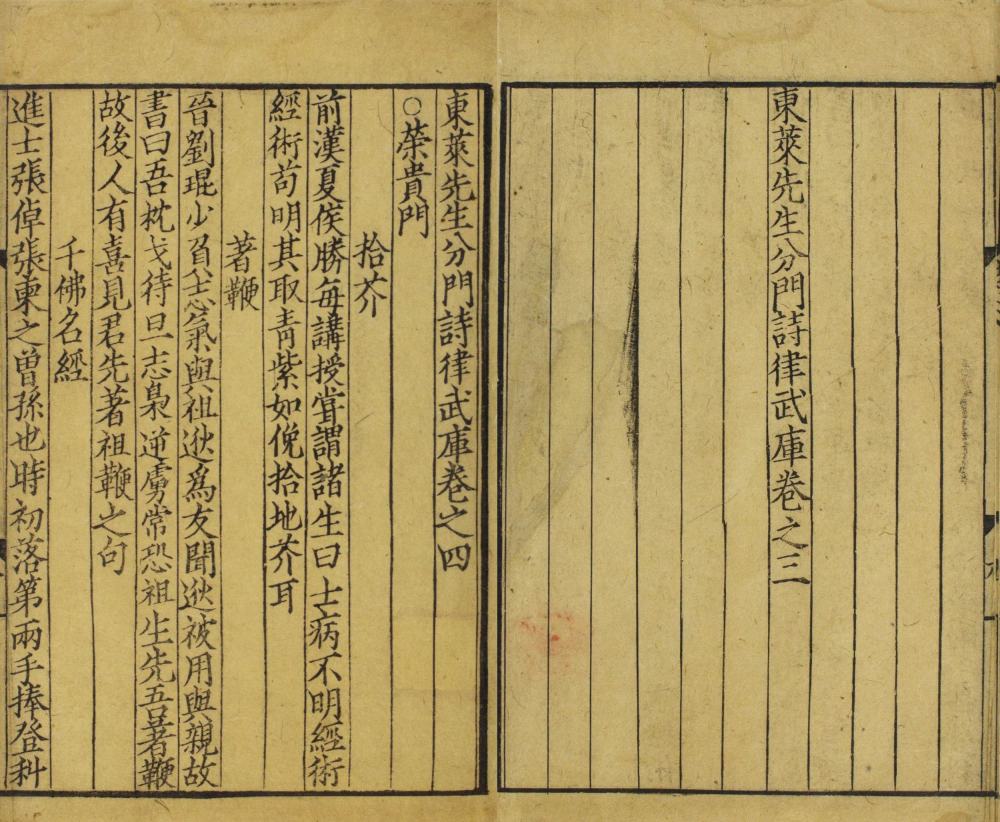 東萊先生分門詩律武庫卷之三
東萊先生分門詩律武庫卷之四
○榮貴門
拾芥
前漢夏侯勝每講授甞謂諸生曰士病不明經術
經術苟明其取青紫如俛拾地芥耳
著鞭
晉劉琨少負志氣與祖逖為友聞逖被用與親故
書曰吾枕戈待旦志梟逆虜常恐祖生先吾著鞭
故後人有喜見君先著祖鞭之句
千佛名經
進士張倬張柬之曾孫也時初落第兩手捧登科